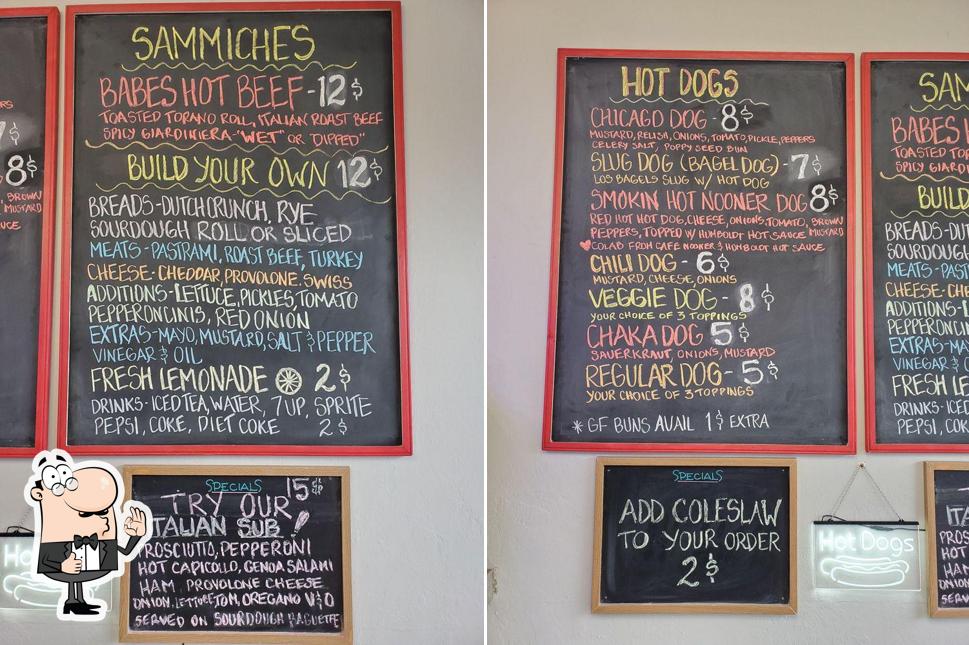 SAMMICHES
BABES HOT BEEF-12$
TOASTED TORANO ROLL, ITALIAN ROAST BEEF
SPICY GIARDINIERA-"WET" OR "DIPPED"
BUILD YOUR OWN 12$
BREADS-DUTCHCRUNCH, RYE
SOURDOUGH ROLL OR SLICED
MEATS-PASTRAMI, ROAST BEEF, TURKEY
CHEESE-CHEDDAR, PROVOLONE, SWISS
ADDITIONS-LETTUCE, PICKLES, TOMATO
PEPPERONCINIS, RED ONION
EXTRAS-MAYO, MUSTARD, SALT & PEPPER
VINEGAR & OIL
FRESH LEMONADE 2$
DRINKS-ICED TEA, WATER, 7UP, SPRITE
PEPSI, COKE, DIET COKE 2$
7$
8$
BROWN
MUSTARD
SPECIALS
TRY OUR 15$
ITALIAN SUB!
PROSCIUTTO, PEPPERONI
HOT CAPICOLLO, GENOA SALAMI
HAM, PROVOLONE CHEESE
ONION, LETTUCE, TOM, OREGANO V&O
SERVED ON SOURDOUGH BAGUETTE
Ho
HOT DOGS
CHICAGO DOG-8$
MUSTARD, RELISH, ONIONS, TOMATO, PICKLE, PEPPERS
CELERY SALT, POPPY SEED BUN
SLUG DOG (BAGEL DOG)-7$
LOS BAGELS SLUG W/ HOT DOG
SMOKIN HOT NOONER DOG 8$
RED HOT HOT DOG, CHEESE, ONIONS, TOMATO, BROWN MUSTARD
PEPPERS, TOPPED W/ HUMBOLDT HOT SAUCE
COLAB FROM CAFE NOONER & HUMBOLDT HOT SAUCE
CHILI DOG-6$
MUSTARD, CHEESE, ONIONS
VEGGIE DOG-8$
YOUR CHOICE OF 3 TOPPINGS
CHAKA DOG 5$
SAUERKRAUT, ONIONS, MUSTARD
REGULAR DOG-5$
YOUR CHOICE OF 3 TOPPINGS
*GF BUNS AVAIL 1$ EXTRA
SPECIALS
ADD COLESLAW
TO YOUR ORDER
2$
Hot Dogs
SAM
BABES H
TOASTED TOR
SPICY GIARDI
BUILD
BREADS-DU
SOURDOUGH
MEATS-PAST
CHEESE-CHE
ADDITIONS-L
PEPPERONCI
EXTRAS-MAY
VINEGAR &
FRESH LE
DRINKS-ICED
PEPSI, CO